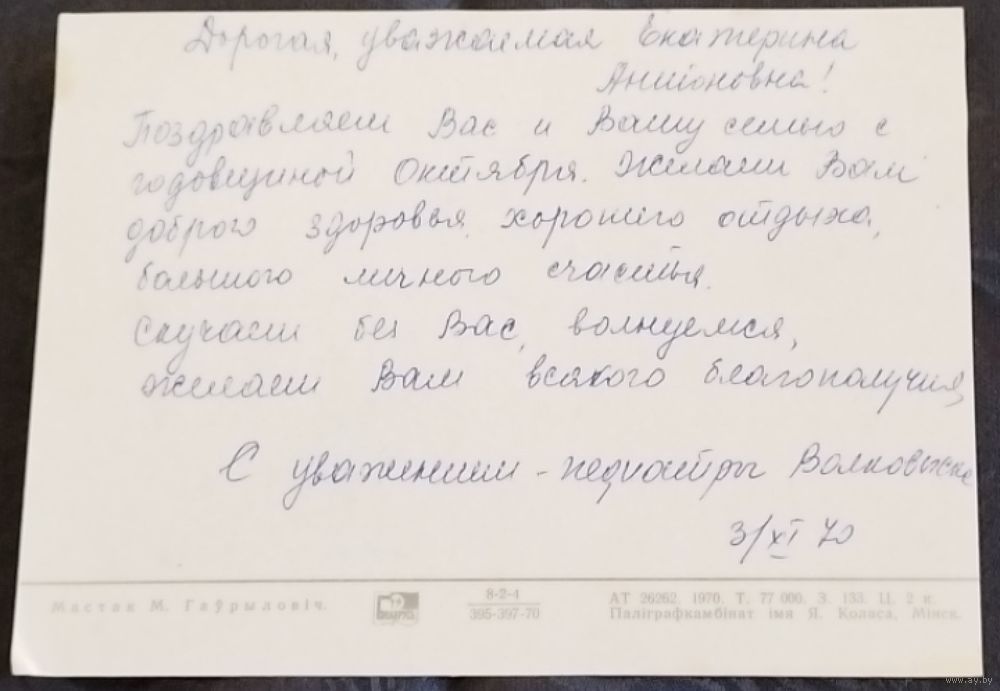 Дорогая, уважаемая Екатерина
Антоновна!
Поздравляем Вас и Вашу семью с
годовщиной Октября. Желаем Вам
доброго здоровья, хорошего отдыха,
большого личного счастья.
Скучаем без Вас, волнуемся,
желаем Вам всякого благополучия,
С уважением - педиатры Волковыска
3/XI 70
Мастак М. Гаўрыловіч.
8-2-4
395-397-70
АТ 26262. 1970. Т. 77 000. З. 133. Ц. 2 к.
Паліграфкамбінат імя Я. Коласа, Мінск.
www.ay.by